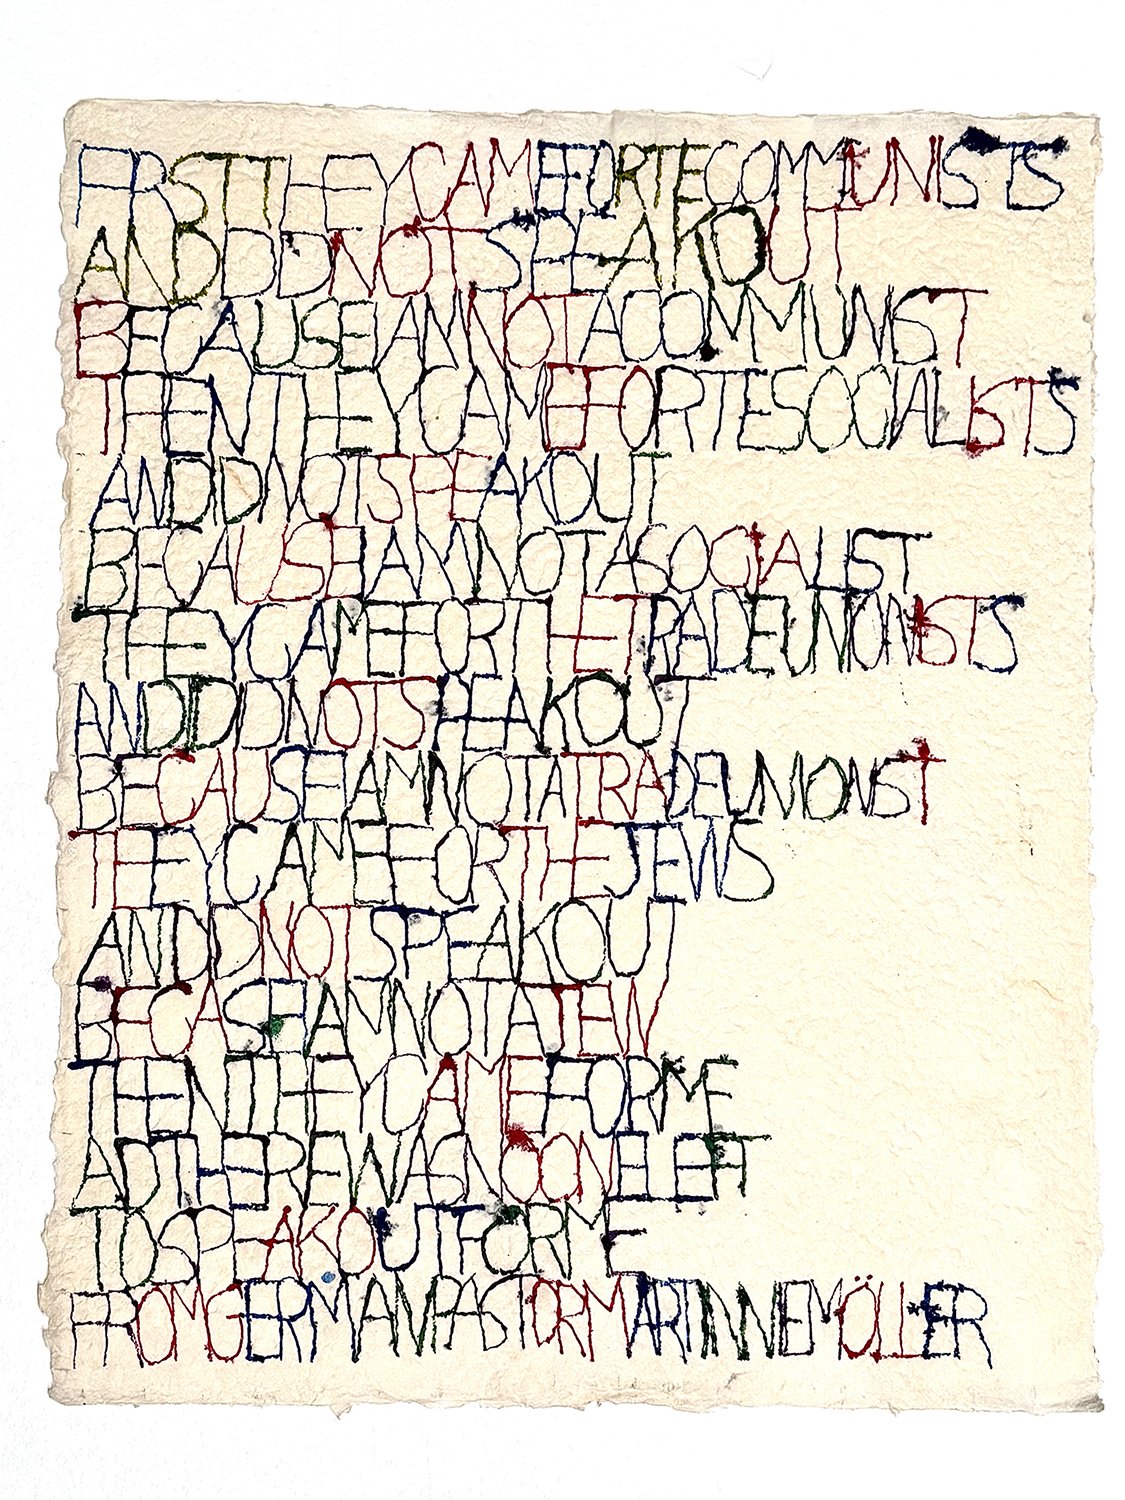 FIRSTTHEYCAMEFORTECOMMUNISTS
ANDIDIDNOTSPEAKOUT
BECAUSEIAMNOTACOMMUNIST
THENTHEYCAMEFORTESOCIALISTS
ANDIDIDNOTSPEAKOUT
BECAUSEIAMNOTASOCIALIST
THEYCAMEFORTHETRADEUNIONISTS
ANDIDIDNOTSPEAKOUT
BECAUSEIAMNOTATRADEUNIONIST
THEYCAMEFORTHEJEWS
ANDIDIDNOTSPEAKOUT
BECASEIAMNOTAJEW
THENTHEYCAMEFORME
ADTHEREWASNOONELEFT
TOSPEAKOUTFORME
FROMGERMANPASTORMARTINNIEMÖLLER